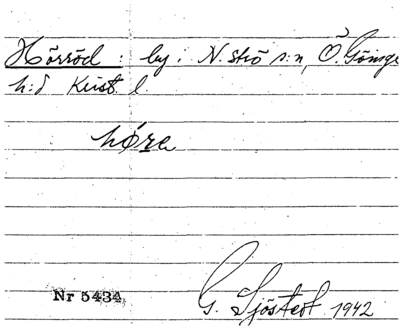 Hörröd: by i N. Strö s:n, Ö. Göinge
h:d Krist. l
høre
Nr 5434
G. Sjöstedt 1942